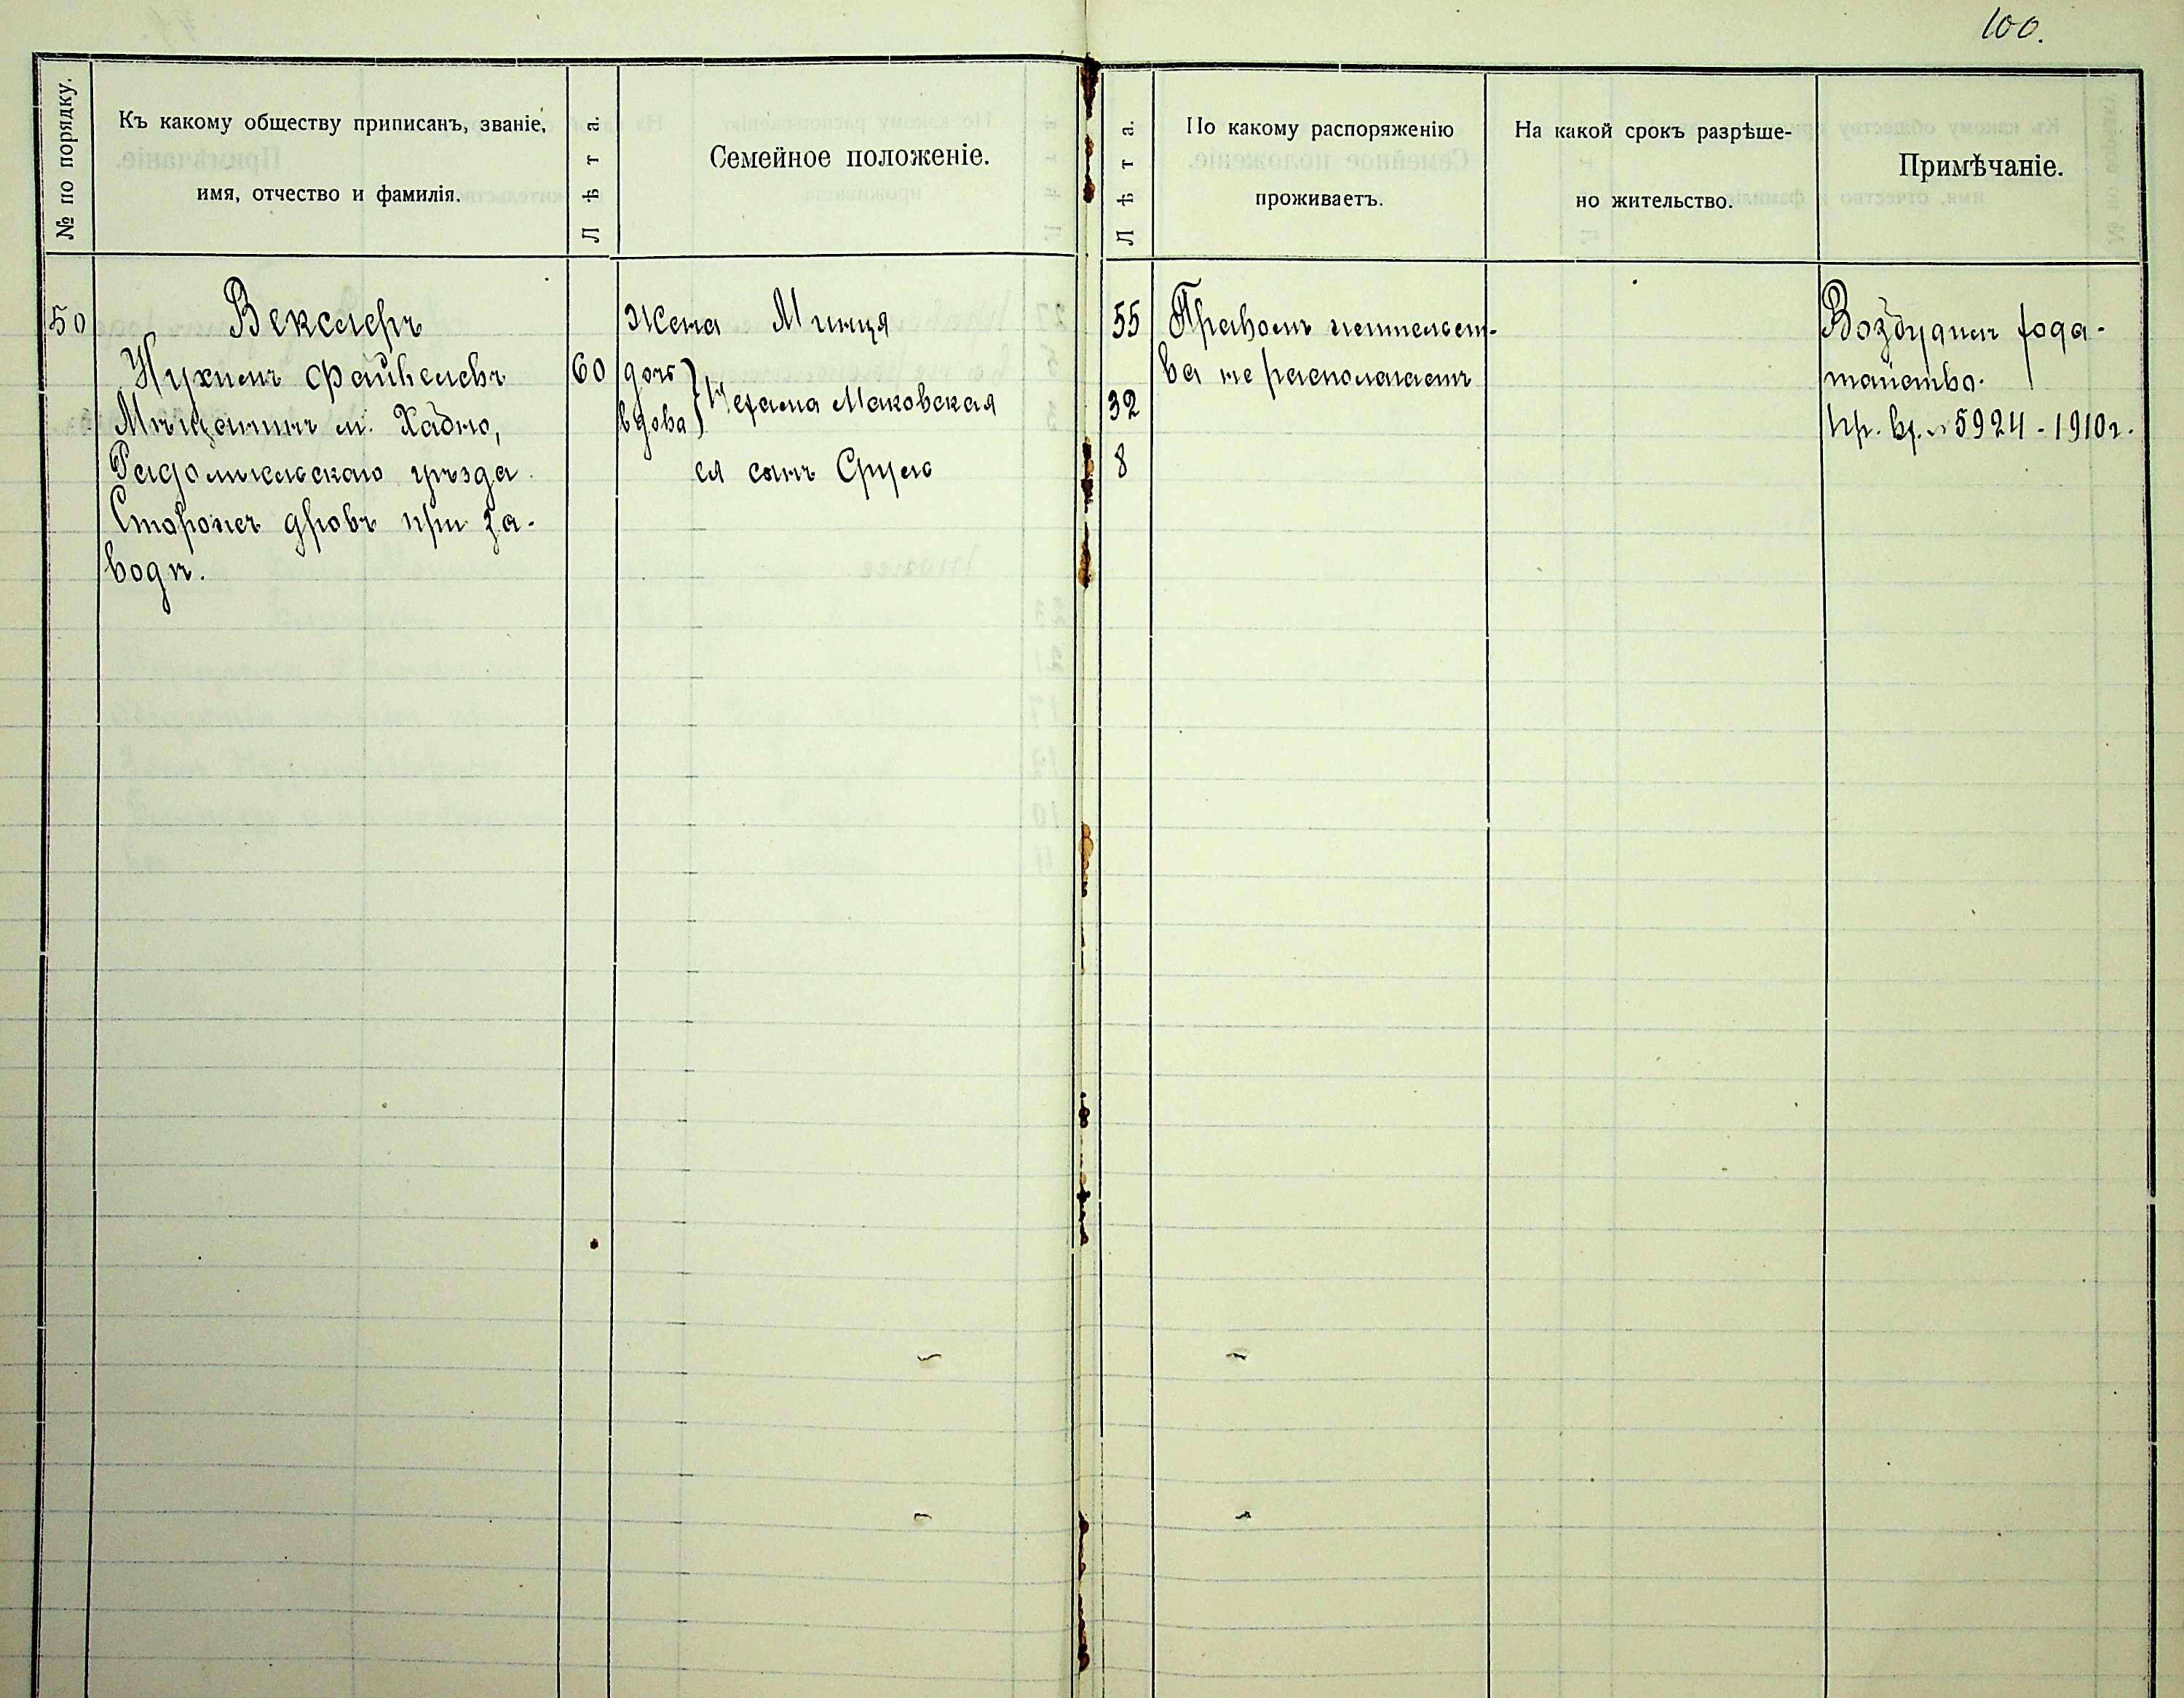 100.
№ по порядку.
Къ какому обществу приписанъ, званіе,
имя, отчество и фамилія.
Лѣта.
Семейное положеніе.
Лѣта.
По какому распоряженію
проживаетъ.
На какой срокъ разрѣше-
но жительство.
Примѣчаніе.
50
Векслеръ
Нухимъ Файвелевъ
Мѣщанинъ м. Хабно,
Радомысльскаго уѣзда.
Сторожъ дровъ при за-
водѣ.
60
Жена Минця
дочь
вдова
Нехама Маковская
ея сынъ Сруль
55
32
8
Правомъ жительст-
ва не располагаетъ
Возбужден хода-
тайство.
пр. вр. № 5924 - 1910 г.